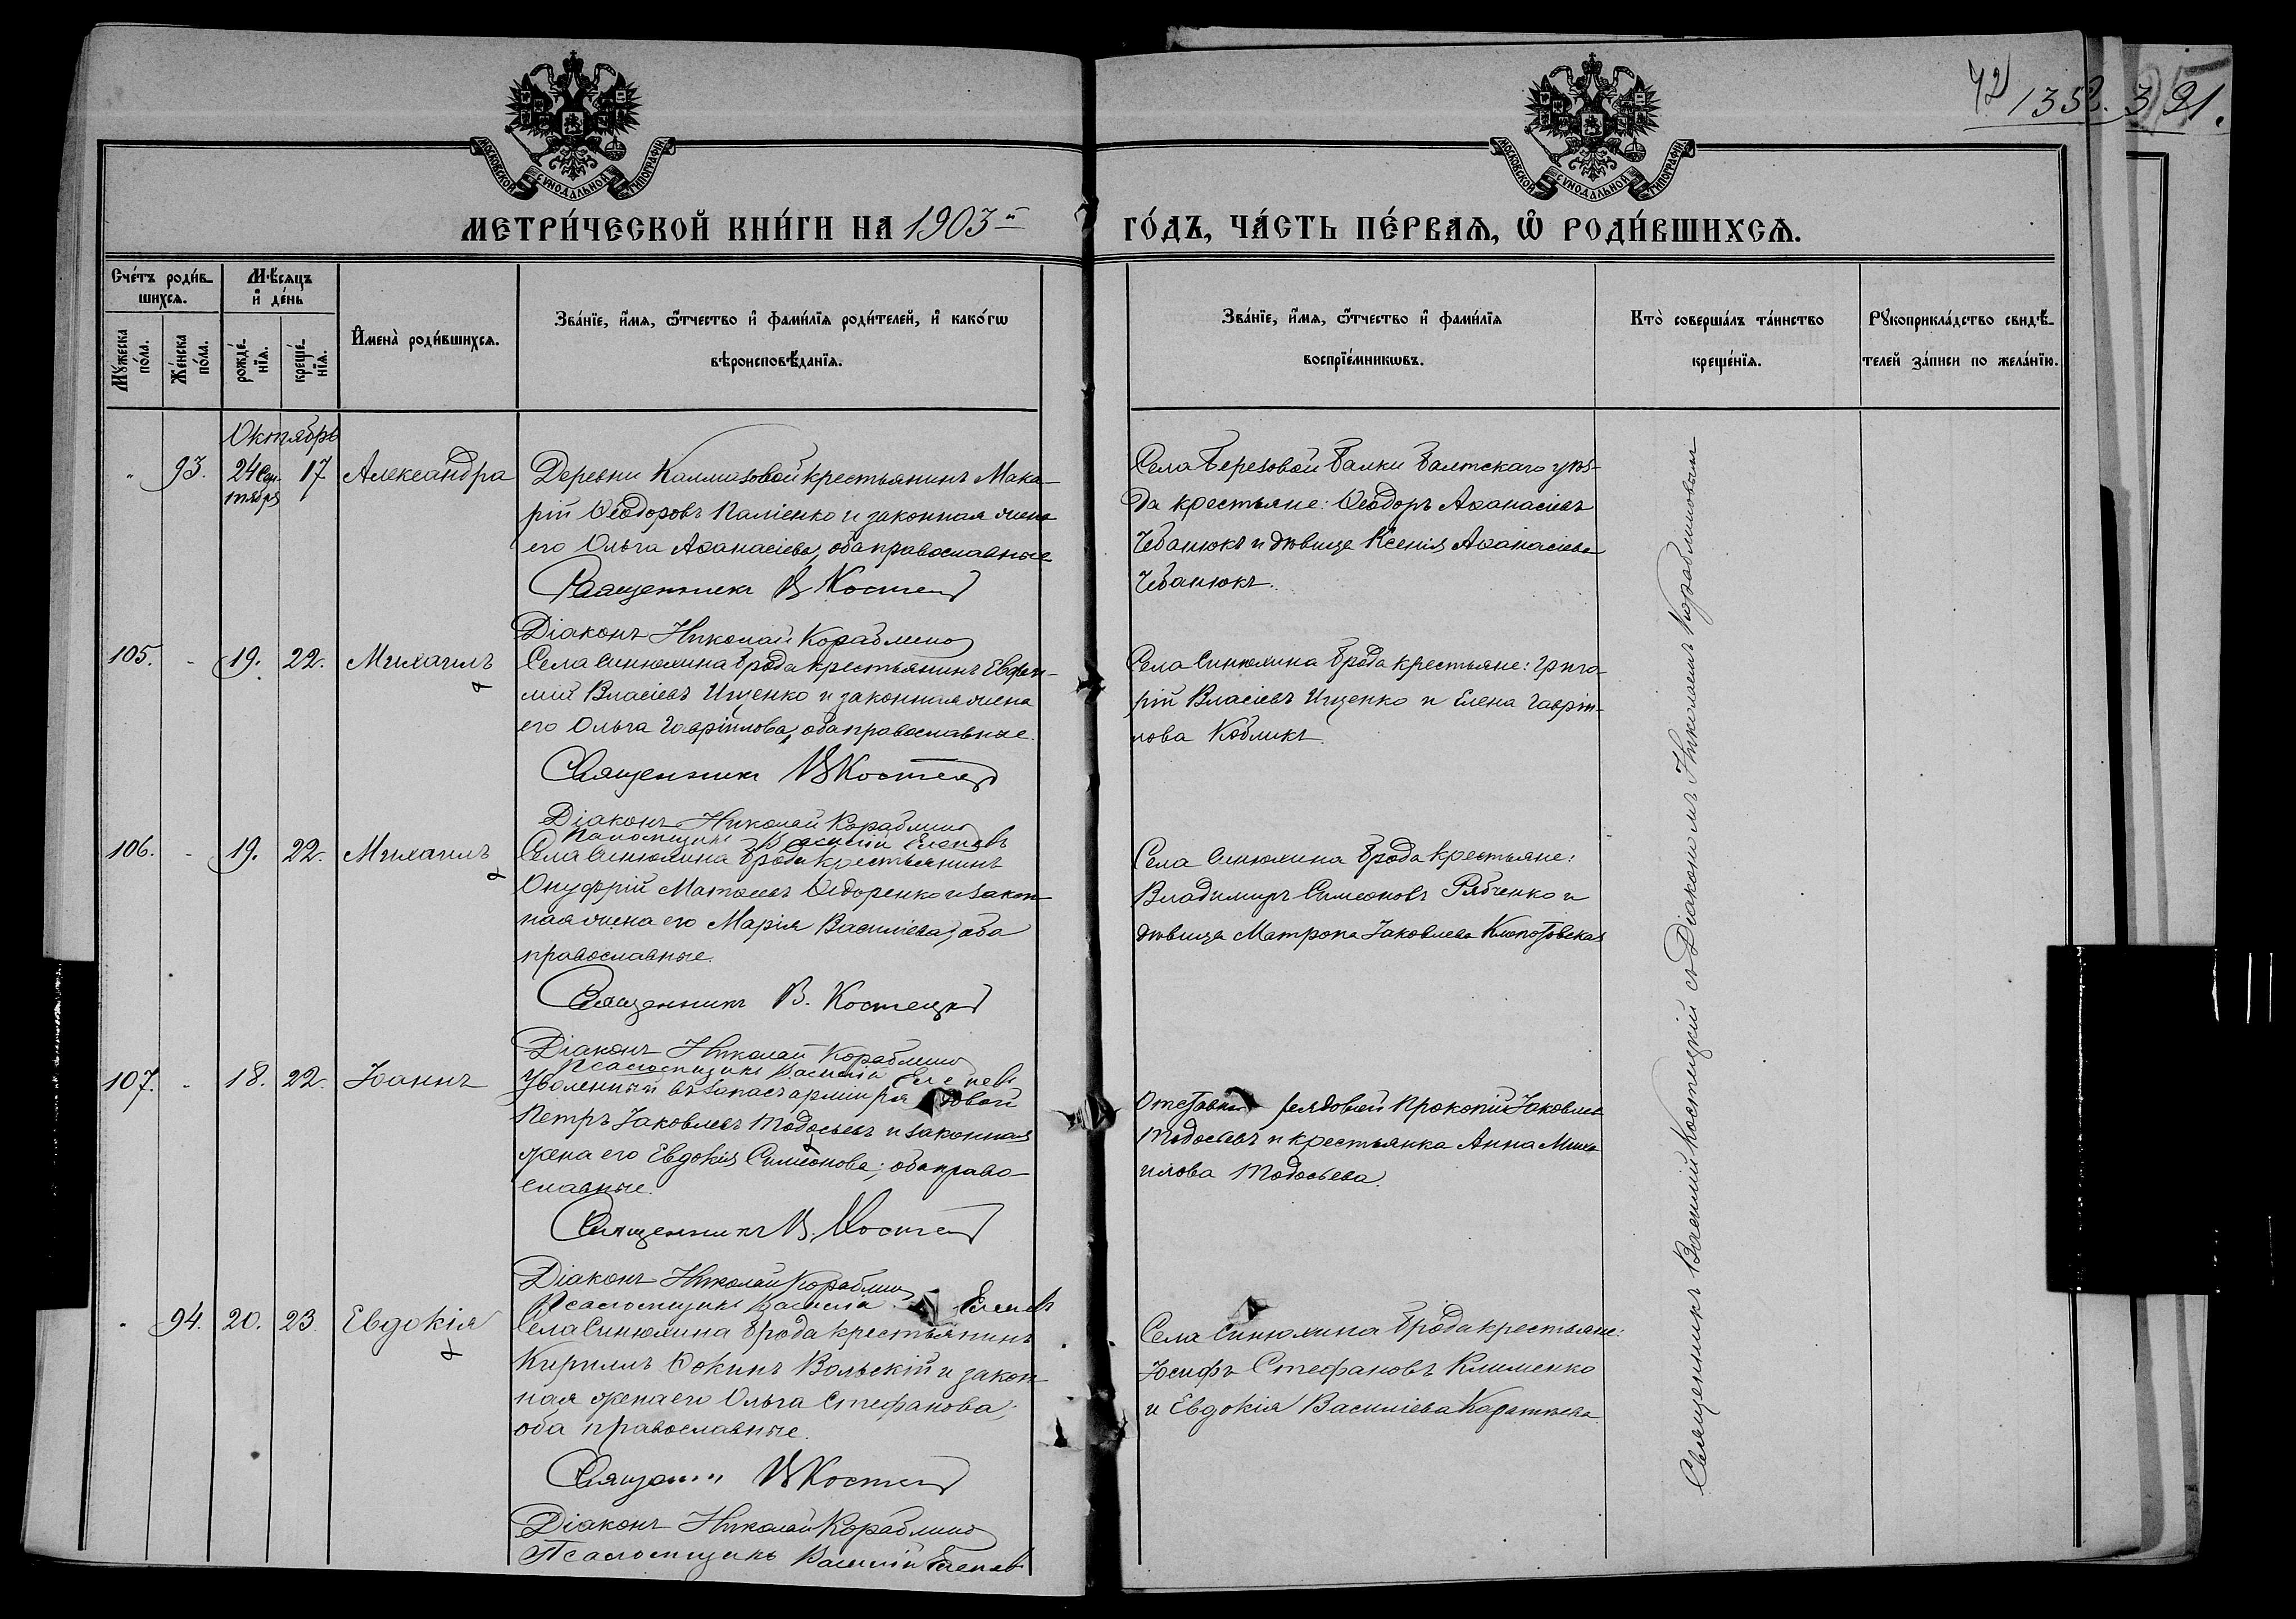 42
1352. 321.
МОСКОВСКОЙ СѴНОДАЛЬНОЙ ТИПОГРАФІИ
МОСКОВСКОЙ СѴНОДАЛЬНОЙ ТИПОГРАФІИ
МЕТРИ́ЧЕСКОЙ КНИ́ГИ НА 1903й ГО́ДЪ, ЧА́СТЬ ПЕ́РВАѦ, Ѽ РОДИ́ВШИХСѦ.
Сче́тъ роди́в-
шихсѧ.
Мѣсѧцъ
и҆ де́нь
Мꙋ́жеска по́ла.
Же́нска по́ла.
рожде́-
нїѧ.
креще́-
нїѧ.
И҆мена̀ роди́вшихсѧ.
Зва́нїе, и҆́мѧ, ѻ҆́тчество и҆ фами́лїѧ роди́телей, и҆ како́гѡ
вѣроисповѣ́данїѧ.
Зва́нїе, и҆́мѧ, ѻ҆́тчество и҆ фами́лїѧ
воспрїе́мникѡвъ.
Кто̀ соверша́лъ та́инство
креще́нїѧ.
Рꙋкоприкла́дство свидѣ́-
телей за́писи по жела́нїю.
Октябрь
" 93. 24 Сен-
тября 17 Александра
Деревни Калмазовой крестьянинъ Мака-
рій Ѳеодоровъ Паліенко и законная жена
его Ольга Аѳанасіева, оба православные
Священникъ В Костец
Діаконъ Николай Кораблино
Села Березовой Балки Балтскаго уѣз-
да крестьяне: Ѳеодоръ Аѳанасіевъ
Чебанюкъ и дѣвица Ксенія Аѳанасіева
Чебанюкъ.
105. - 19. 22. Михаилъ
Села Синюхина Брода крестьянинъ Евфи-
мій Власіевъ Ищенко и законная жена
его Ольга Гавріилова, оба православные.
Священникъ В Костец
Діаконъ Николай Кораблино
Псаломщикъ Василій
Села Синюхина Брода крестьяне: Григо-
рій Власіевъ Ищенко и Елена Гавріи-
лова Кобликъ.
106. - 19. 22. Михаилъ
Села Синюхина Брода крестьянинъ
Онуфрій Матѳеевъ Ѳедоренко и закон-
ная жена его Марія Василіева, оба
православные.
Священникъ В. Костецкі
Діаконъ Николай Кораблино
Псаломщикъ Василій
Села Синюхина Брода крестьяне:
Владимиръ Симеоновъ Рябченко и
дѣвица Матрона Іаковлева Клопотовская
107. - 18. 22. Іоаннъ
Уволенный въ запасъ арміи рядовой
Петръ Іаковлевъ Тодосьевъ и законная
жена его Евдокія Симеонова; оба право-
славные.
Священникъ В. Костец
Діаконъ Николай Кораблино
Псаломщикъ Василій
Отставной рядовой Прокопій Іаковлев
Тодосьевъ и крестьянка Анна Миха
илова Тодосьева.
" 94. 20. 23. Евдокія
Села Синюхина Брода крестьянинъ
Кириллъ Ѳокинъ Вольскій и закон-
ная жена его Ольга Стефанова;
оба православные.
Священни В Костец
Діаконъ Николай Кораблино
Псаломщикъ Василій
Села Синюхина Брода крестьяне:
Іосифъ Стефановъ Клименко
и Евдокія Василіева
Священникъ Василій Костецкій съ Діакономъ Николаемъ Кораблиновымъ